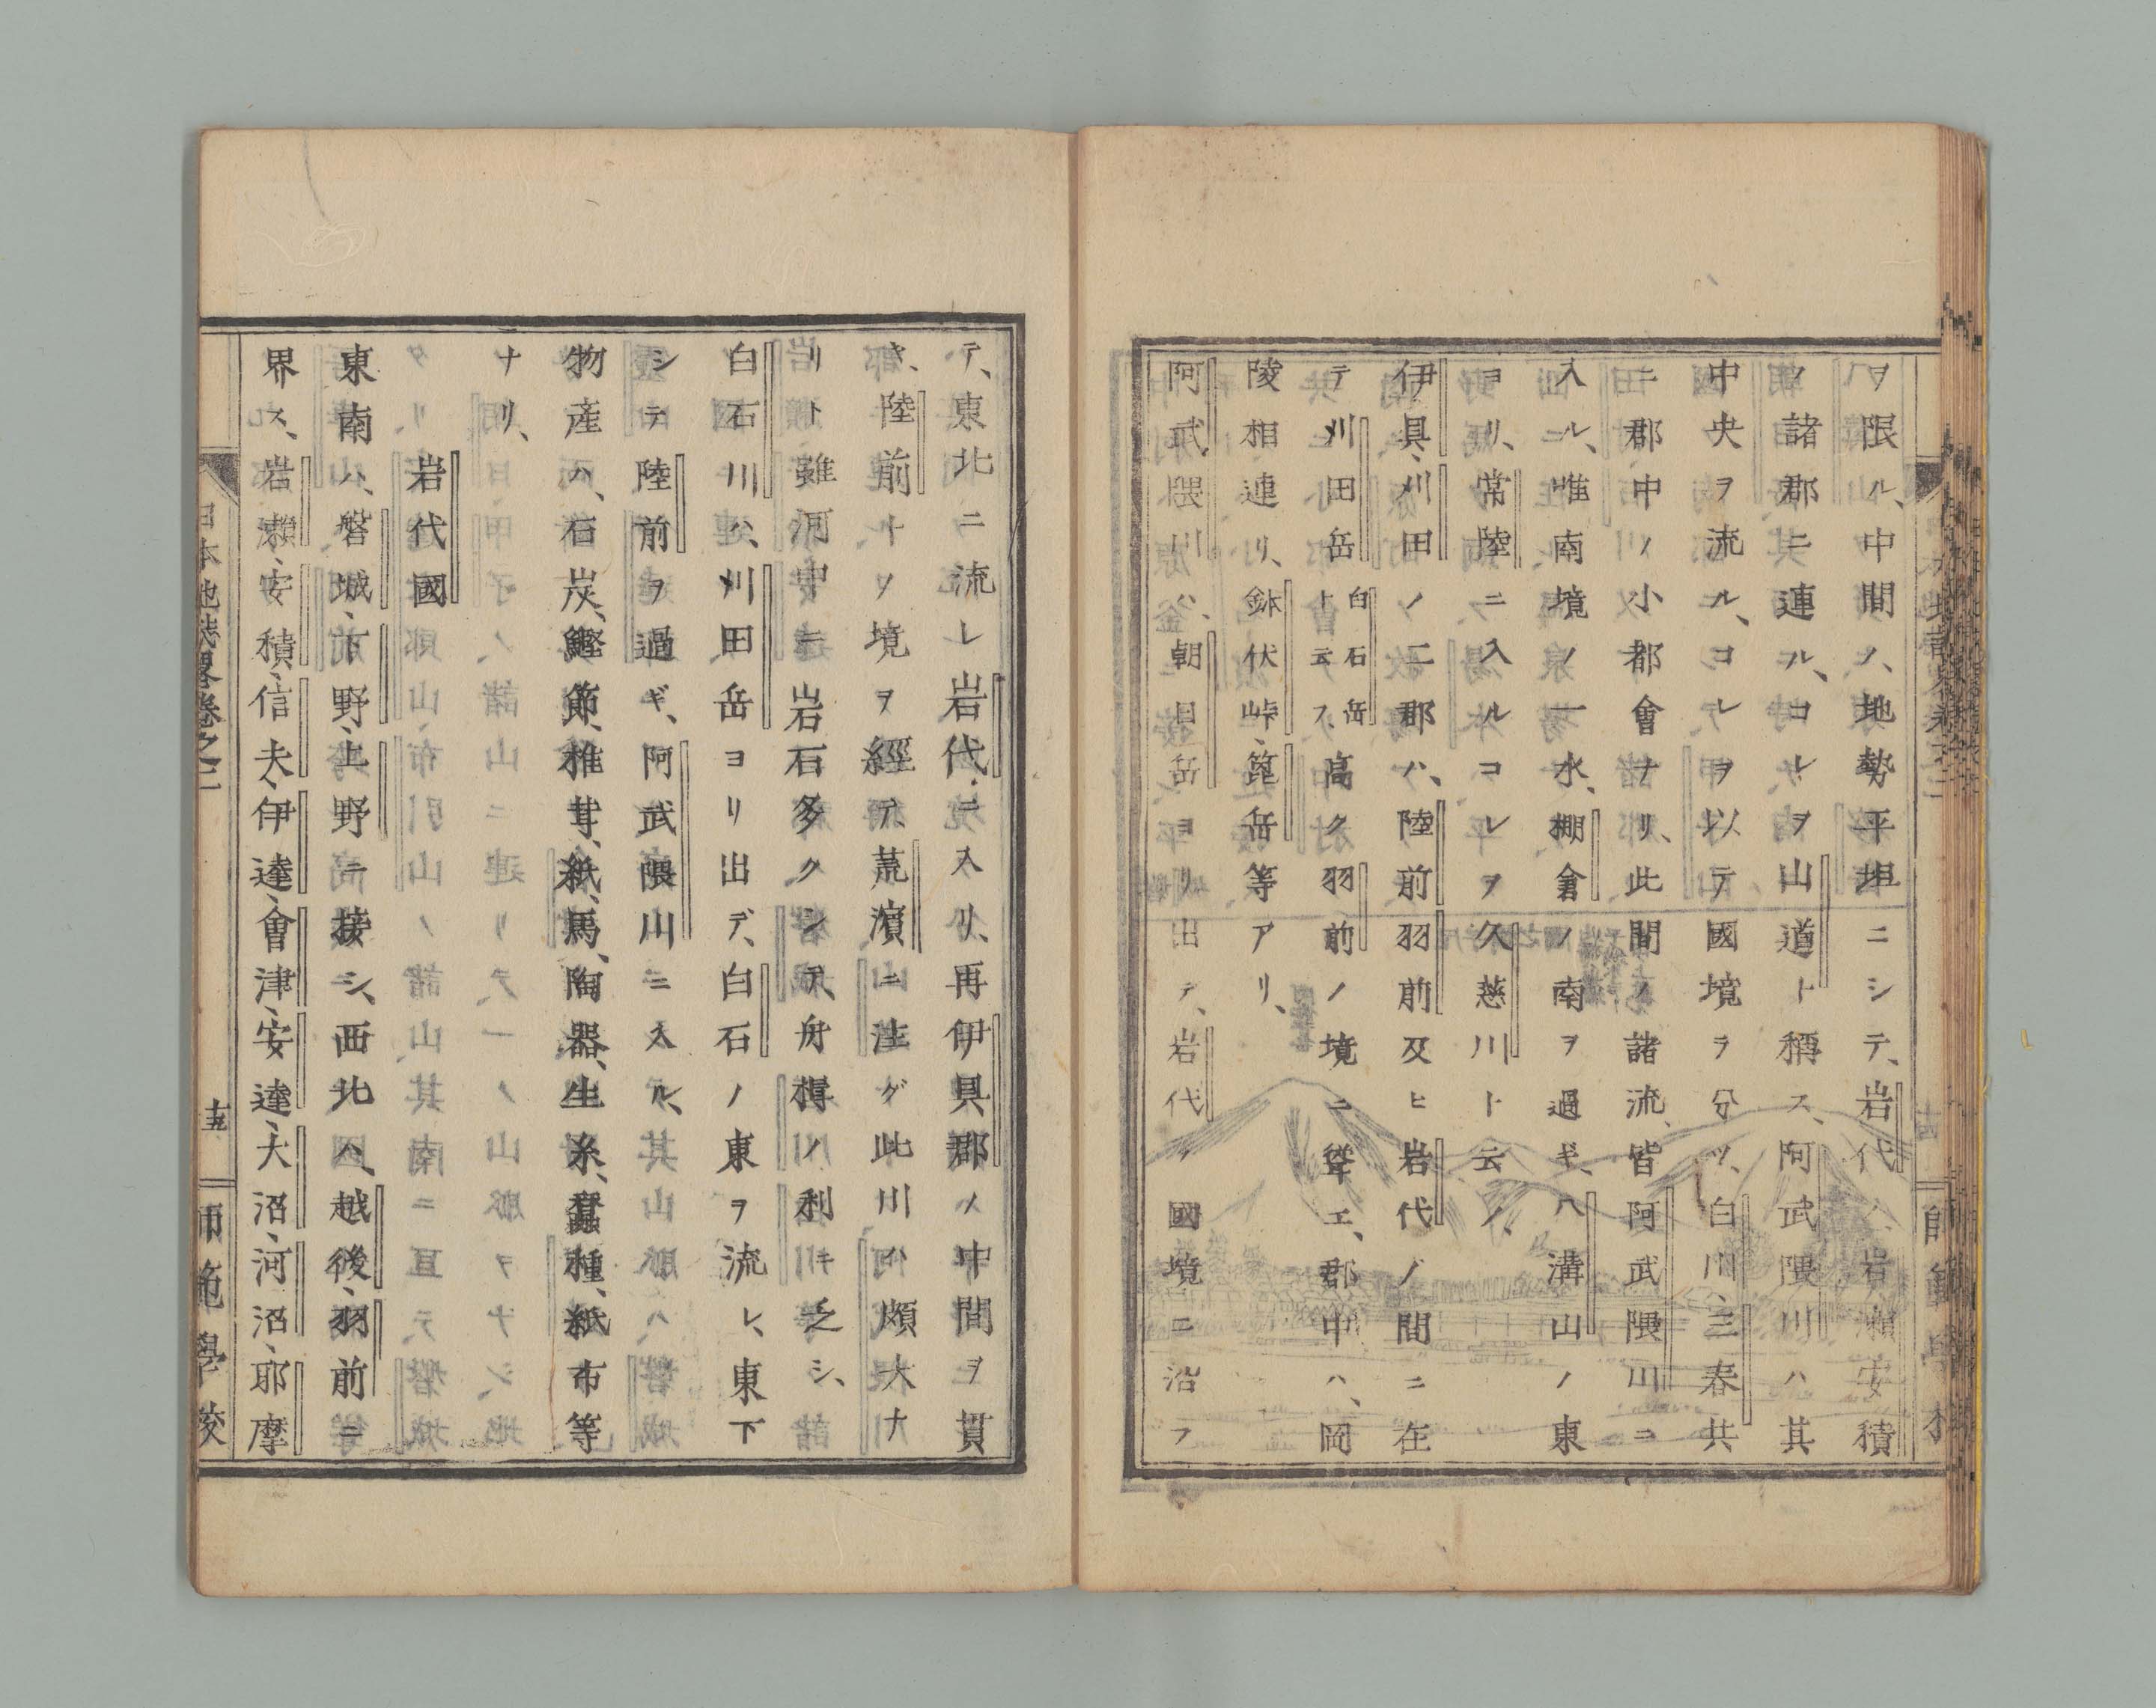 ヲ限ル、中間ハ、地勢平坦ニシテ、岩代ノ、岩瀬安積
ノ諸郡ニ連ル、コレヲ山道ト稱ス、阿武隈川ハ其
中央ヲ流ル、コレヲ以テ國境ヲ分ツ、白川、三春共
ニ郡中ノ小都會ナリ、此間ノ諸流、皆阿武隈川ニ
入ル、唯南境ノ一水、棚倉ノ南ヲ過ギ、八溝山ノ東
ヨリ、常陸ニ入ルコレヲ久慈川ト云フ、
伊具、刈田ノ二郡ハ、陸前羽前及ヒ岩代ノ間ニ在
テ刈田岳白石岳岳ト云フ、高ク羽前ノ境ニ聳エ、郡中ハ、岡
陵相連リ、鉢伏峠、箆岳等アリ、
阿武隈川ハ、朝日岳ヨリ出テ、岩代ノ國境ニ沿フ
テ、東北ニ流レ岩代ニ入リ、再伊具郡ノ中間ヲ貫
キ、陸前トノ境ヲ經テ、荒濱ニ注グ此川ハ頗大ナ
リト雖河中ニ岩石多クシテ、舟楫ノ利キ之シ、
白石川ハ、刈田岳ヨリ出デ、白石ノ東ヲ流レ、東下
シテ陸前ヲ過ギ、阿武隈川ニ入ル、
物産ハ、石炭、鰹節、椎茸、紙、馬、陶器、生糸、蠶種、紙布等
ナリ、
岩代國
東南ハ、磐城、下野、上野ニ接シ、西北ハ、越後、羽前ニ
界ス、岩瀬、安積、信夫、伊達、會津、安達、大沼、河沼、耶摩
日本地誌畧卷之二
十五
師範學校